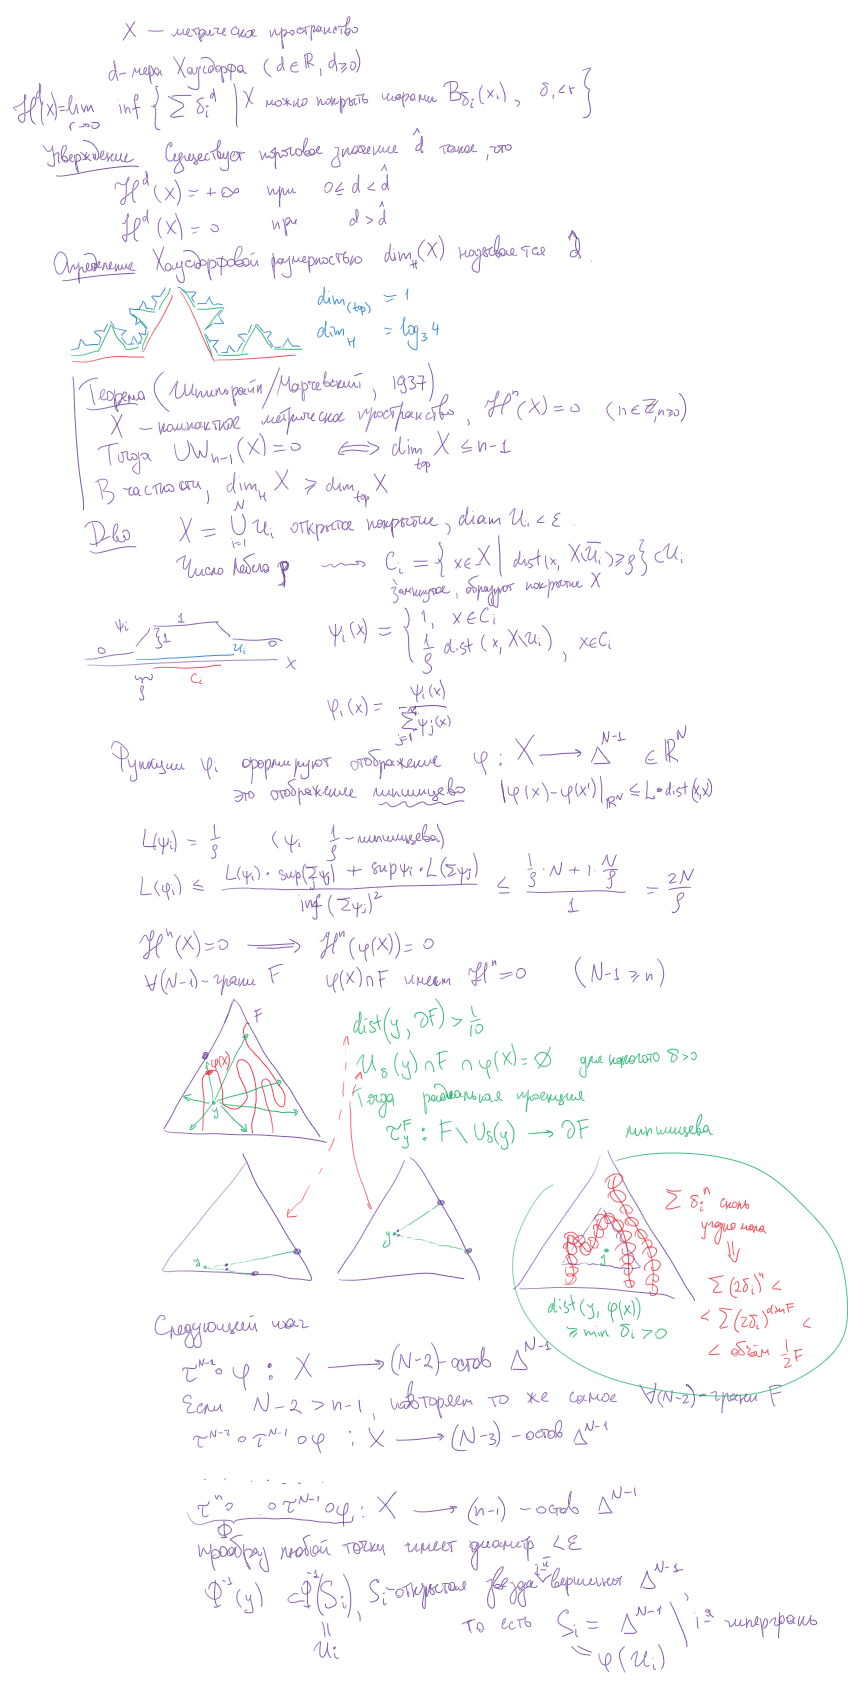 X — метрическое пространство
d-мера Хаусдорфа (d ∈ ℝ, d ⩾ 0)
ℋᵈ(X) = lim_{r→0} inf { ∑ δᵢᵈ | X можно покрыть шарами B_{δᵢ}(xᵢ), δᵢ < r }
Утверждение Существует пороговое значение d̂ такое, что
ℋᵈ(X) = +∞ при 0 ≤ d < d̂
ℋᵈ(X) = 0 при d > d̂
Определение Хаусдорфовой размерностью dim_H(X) называется d̂.
dim_(top) = 1
dim_H = log₃4
Теорема (Шпильрайн/Марчевский, 1937)
X — компактное метрическое пространство, ℋⁿ(X) = 0 (n ∈ ℤ, n⩾0)
Тогда UW_{n-1}(X) = 0 ⟺ dim_top X ≤ n-1
В частности, dim_H X ⩾ dim_top X
Д-во X = ⋃_{i=1}^{N} Uᵢ открытое покрытие, diam Uᵢ < ε.
Число Лебега ρ ⇝ Cᵢ = { x∈X | dist(x, X\Uᵢ) ⩾ ρ } ⊂ Uᵢ
замкнутые, образуют покрытие X
ψᵢ 1 0 }1 Uᵢ 0 Cᵢ X ρ
ψᵢ(x) = { 1, x∈Cᵢ
1/ρ dist(x, X\Uᵢ), x∈Cᵢ
φᵢ(x) = ψᵢ(x) / ∑_{j=1}^{N} ψⱼ(x)
Функции φᵢ формируют отображение φ : X → Δ^{N-1} ∈ ℝᴺ
это отображение липшицево |φ(x)-φ(x')|_{ℝᴺ} ≤ L·dist(x,x')
L(ψᵢ) = 1/ρ (ψᵢ 1/ρ-липшицева)
L(φᵢ) ≤ (L(ψᵢ)·sup(∑ψⱼ) + supψᵢ·L(∑ψⱼ)) / inf(∑ψⱼ)² ≤ (1/ρ·N + 1·N/ρ) / 1 = 2N/ρ
ℋⁿ(X) = 0 ⟹ ℋⁿ(φ(X)) = 0
∀(N-1)-грани F φ(X)∩F имеет ℋⁿ = 0 (N-1 ⩾ n)
F φ(X) y
dist(y, ∂F) > 1/10
U_δ(y) ∩ F ∩ φ(X) = ∅ для какого-то δ>0
Тогда радиальная проекция
τ_y^F : F \ U_δ(y) → ∂F липшицева
y
y
y
dist(y, φ(x)) ⩾ min δᵢ > 0
∑ δᵢⁿ сколь
угодно мала
⇓
∑(2δᵢ)ⁿ <
< ∑(2δᵢ)^{dim F} <
< объём ½F
Следующий шаг
τ^{N-1}∘φ : X → (N-2)-остов Δ^{N-1}
Если N-2 > n-1, повторяем то же самое ∀(N-2)-грани F
τ^{N-2}∘τ^{N-1}∘φ : X → (N-3)-остов Δ^{N-1}
. . . . . . . .
τⁿ∘ ∘τ^{N-1}∘φ : X → (n-1)-остов Δ^{N-1}
Φ
прообраз любой точки имеет диаметр < ε
Φ⁻¹(y) ⊂ Φ⁻¹(Sᵢ), Sᵢ-открытая звезда i-й вершины Δ^{N-1}
‖
Uᵢ
то есть Sᵢ = Δ^{N-1} \ i-я гипергрань
= φ(Uᵢ)